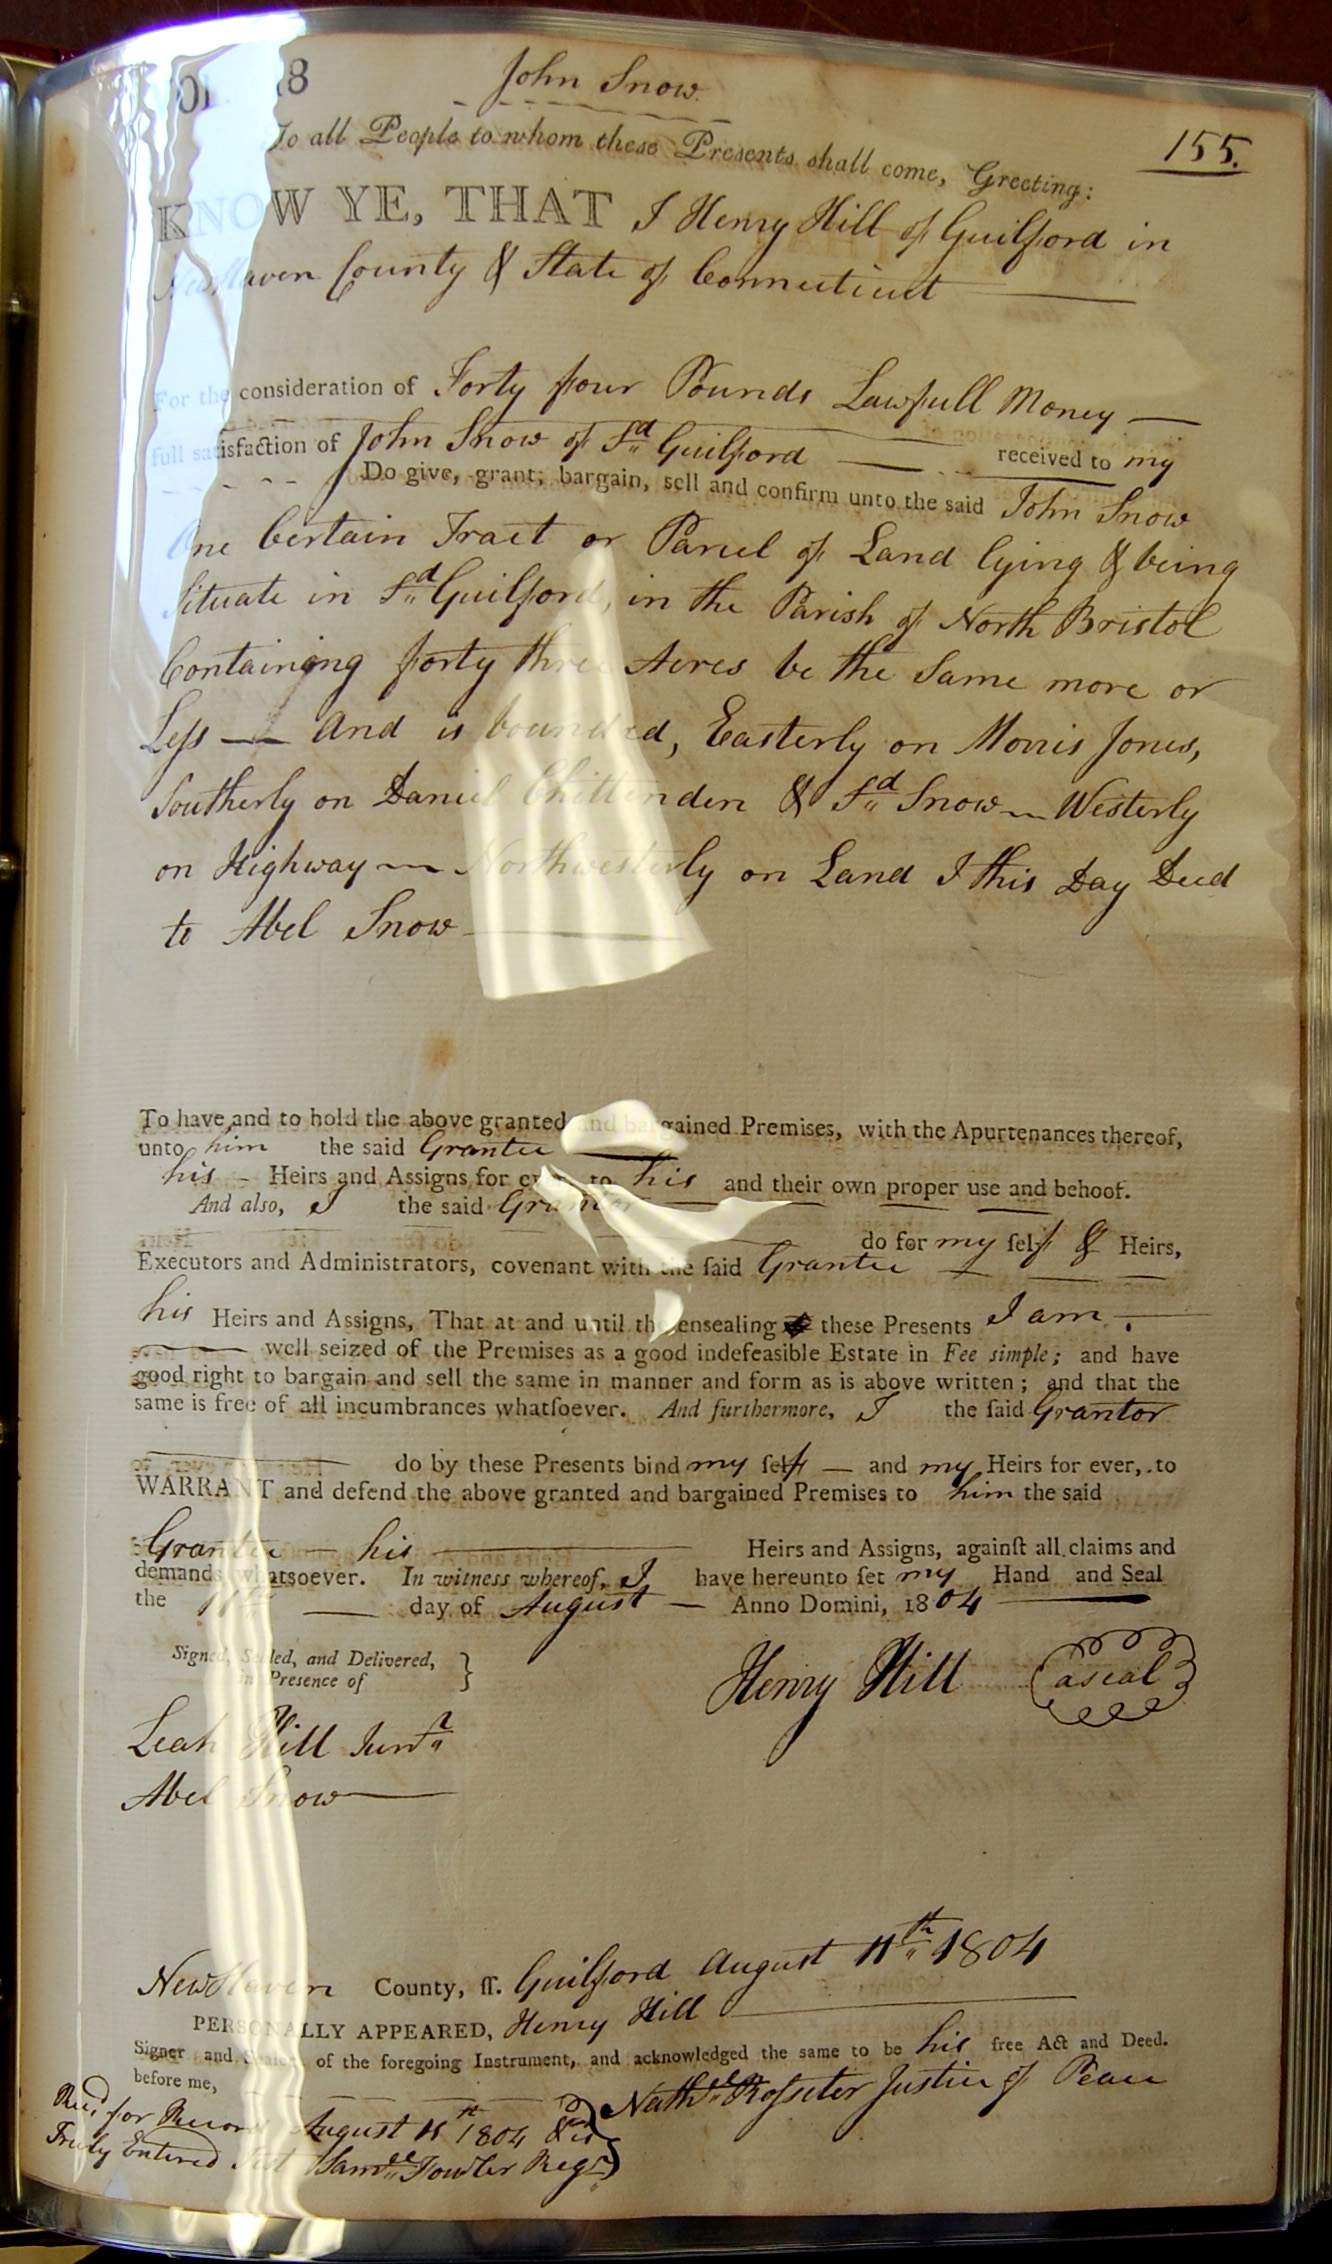 VOL 28
John Snow.
155.
To all People to whom these Presents shall come, Greeting:
KNOW YE, THAT I Henry Hill of Guilford in
New Haven County & State of Connecticut
For the consideration of Forty four Pounds Lawfull Money
full satisfaction of John Snow of Sd Guilford received to my
Do give, grant, bargain, sell and confirm unto the said John Snow
One Certain Tract or Parcel of Land lying & being
Situate in Sd Guilford, in the Parish of North Bristol
Containing forty three Acres be the Same more or
Less — And is bounded, Easterly on Morris Jones,
Southerly on Daniel Chittenden & Sd Snow — Westerly
on Highway — Northwesterly on Land I this Day Deed
to Abel Snow
To have and to hold the above granted and bargained Premises, with the Apurtenances thereof,
unto him the said Grantee
his Heirs and Assigns for ever, to his and their own proper use and behoof.
And also, I the said Grantor
do for my self & Heirs,
Executors and Administrators, covenant with the said Grantee
his Heirs and Assigns, That at and until the ensealing these Presents I am
well seized of the Premises as a good indefeasible Estate in Fee simple; and have
good right to bargain and sell the same in manner and form as is above written; and that the
same is free of all incumbrances whatsoever. And furthermore, I the said Grantor
do by these Presents bind my self — and my Heirs for ever, to
WARRANT and defend the above granted and bargained Premises to him the said
Grantee — his Heirs and Assigns, against all claims and
demands whatsoever. In witness whereof, I have hereunto set my Hand and Seal
the 11th day of August — Anno Domini, 1804
Signed, Sealed, and Delivered,
in Presence of
Henry Hill aseal
Leah Hill Junr
Abel Snow
New Haven County, ss. Guilford August 11th 1804
PERSONALLY APPEARED, Henry Hill
Signer and Sealer of the foregoing Instrument, and acknowledged the same to be his free Act and Deed.
before me,
Nathll Rosseter Justice of Peace
Recd for Record August 11th 1804 & is
Truly Entered Test Samll Fowler Regr